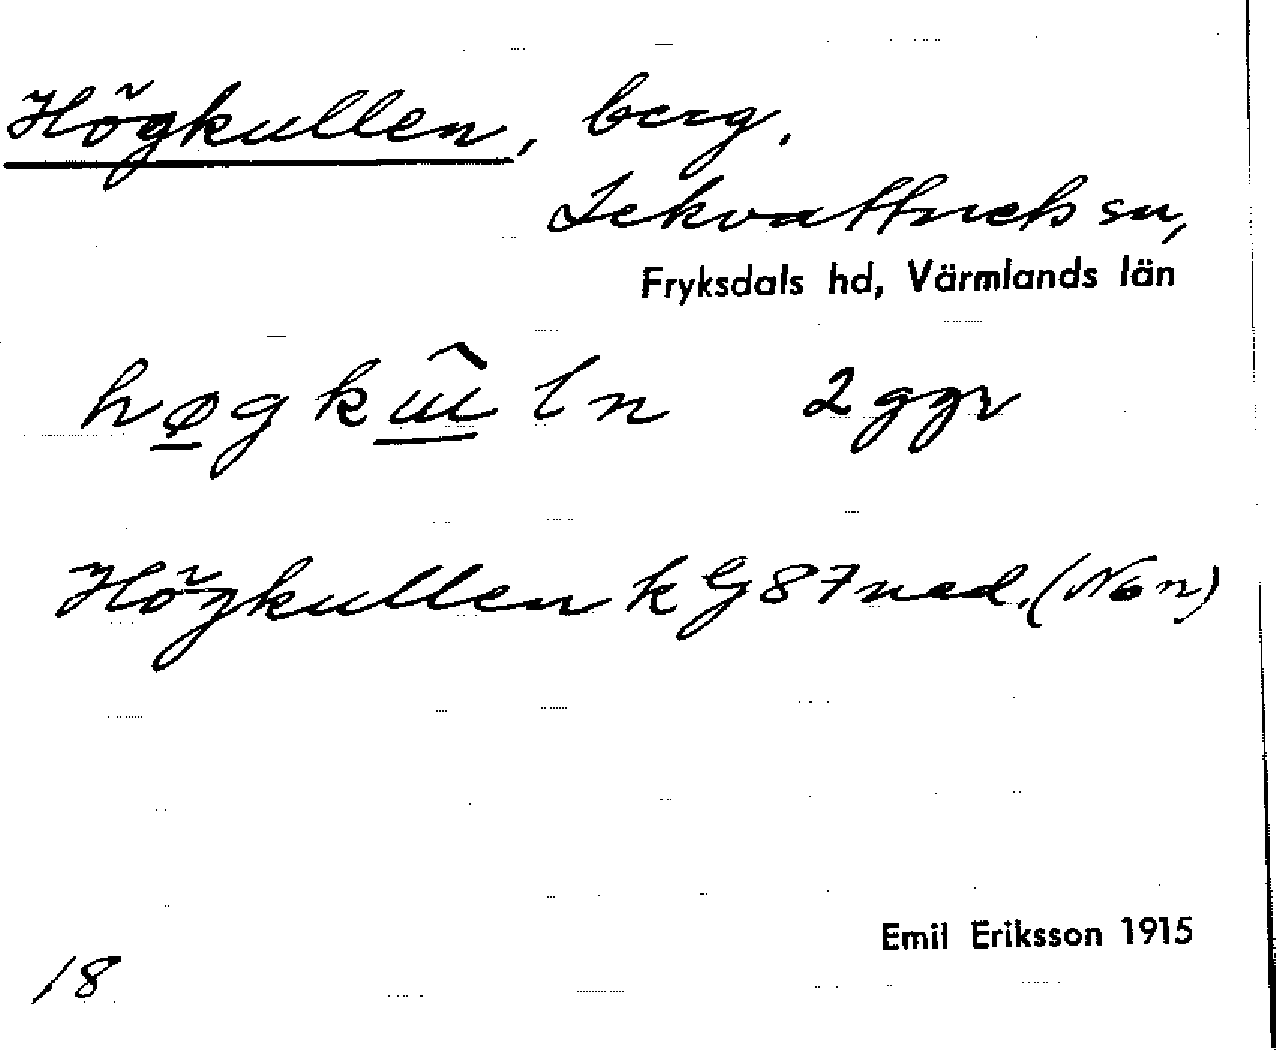 Högkullen, berg.
Lekvattnets sn,
Fryksdals hd, Värmlands län
høgkɯ̂ln 2 ggr
Högkullen k Gj 87 ned. (Non)
Emil Eriksson 1915
18